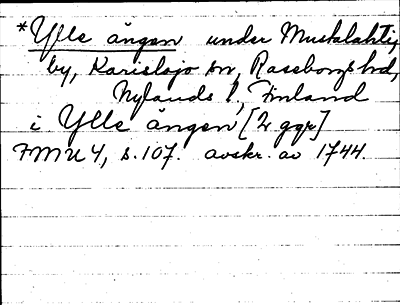 *Ylle ängen under Muskalahti
by, Karislojo sn, Raseborgs hd,
Nylands l, Finland
i Ylle ängen [2 ggr]
FMU 4, s. 107. avskr. av 1744.